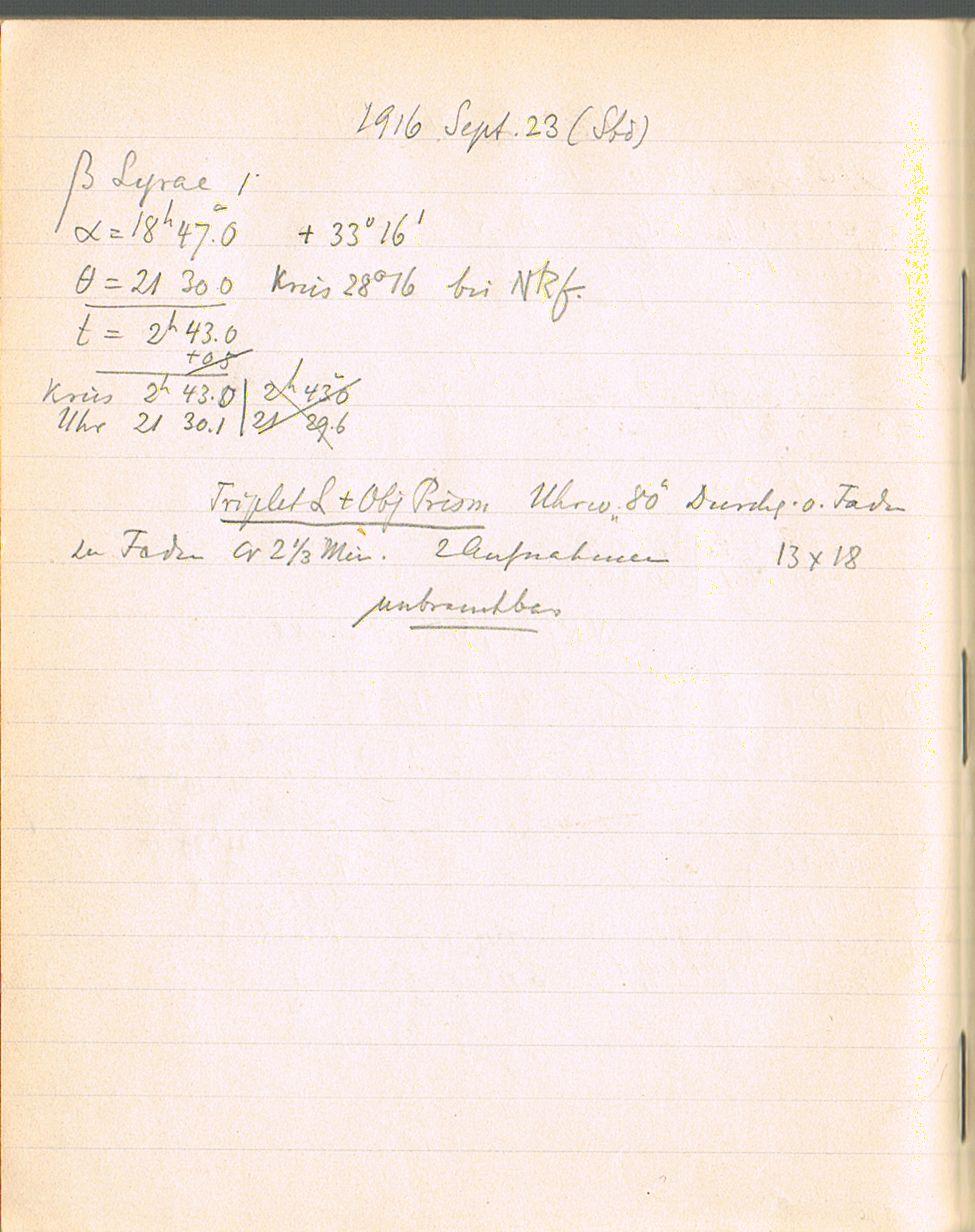 1916 Sept. 23 (Sbd)
β Lyrae
α = 18ʰ 47.ᵐ0 + 33°16'
θ = 21 30 0 Kreis 28°16 bei NRf.
t = 2ʰ 43.0
+0 5
Kreis 2ʰ 43.0 | 2ʰ 43 6
Uhr 21 30.1 | 21 29.6
Triplet L + Obj Prism Uhrw. „80" Durchg. o. Faden
zu Faden cr 2 1/3 Min. 2 Aufnahmen 13 x 18
unbrauchbar